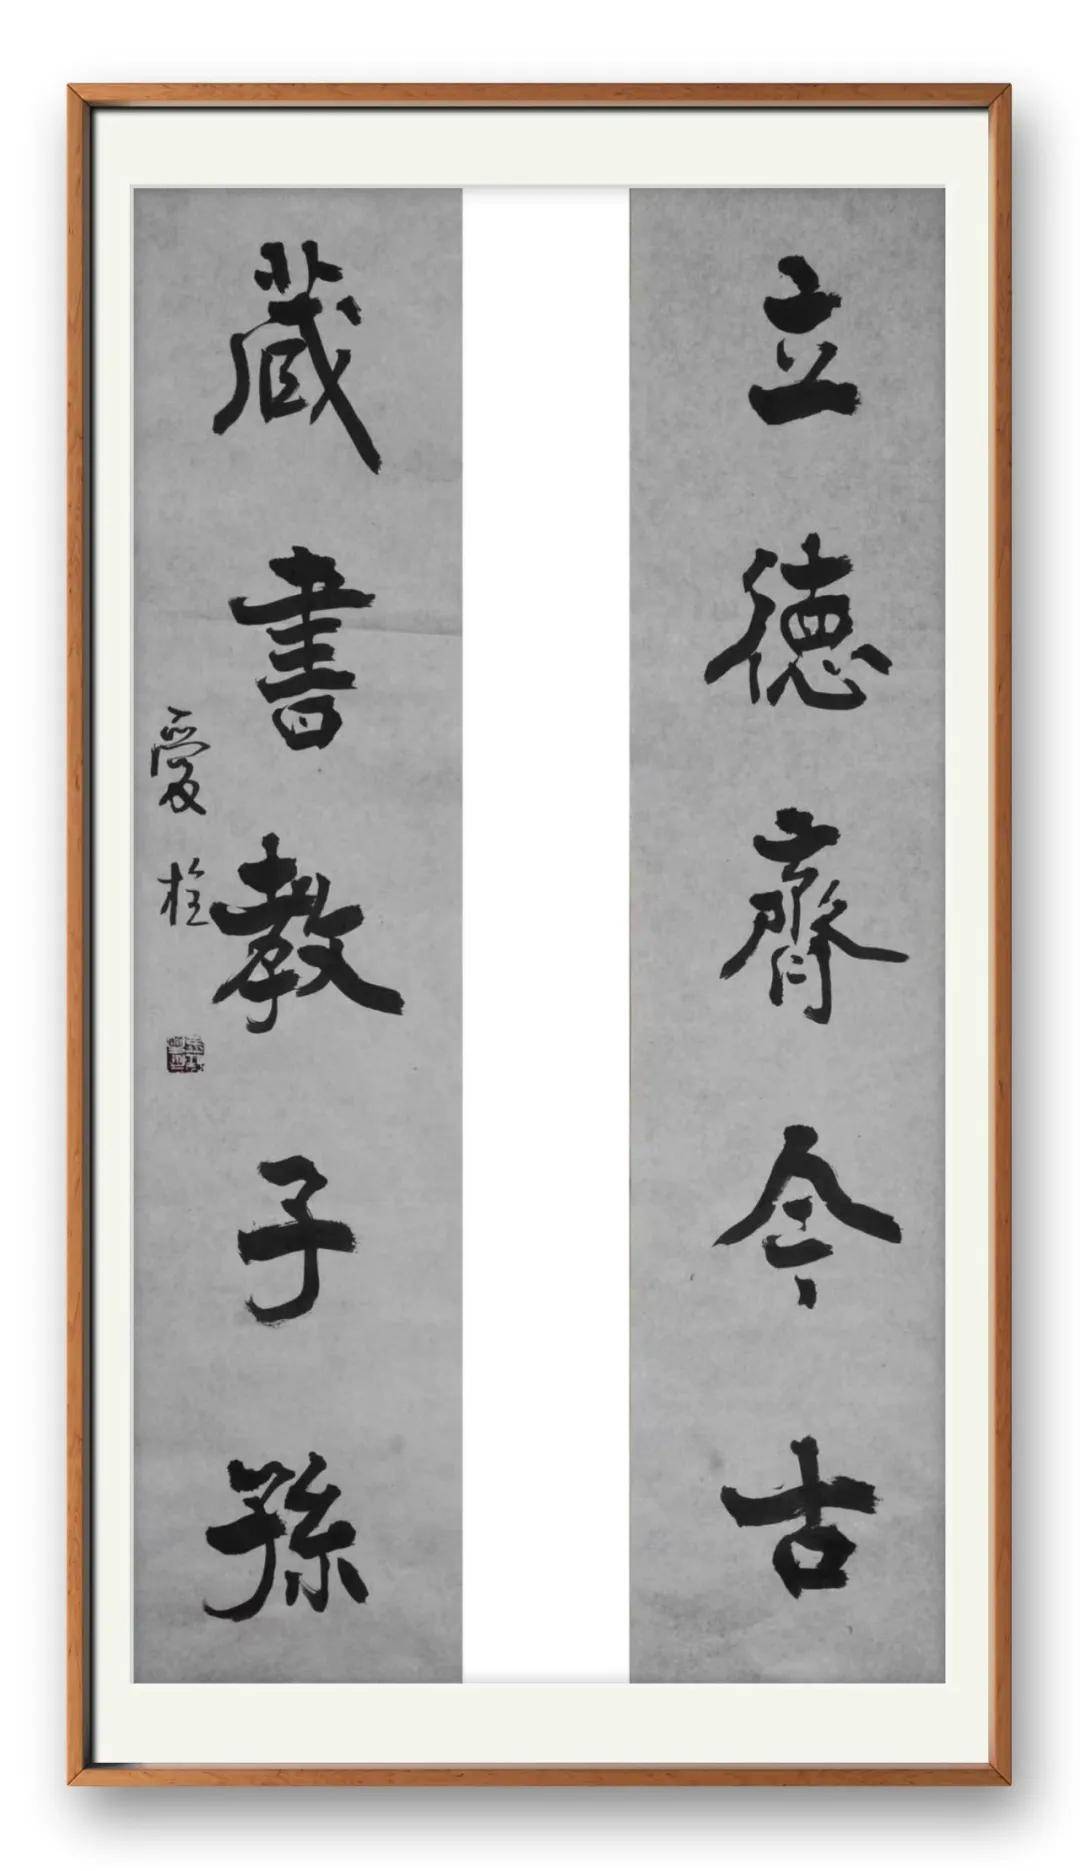 立德齊今古
藏書教子孫
愛柱